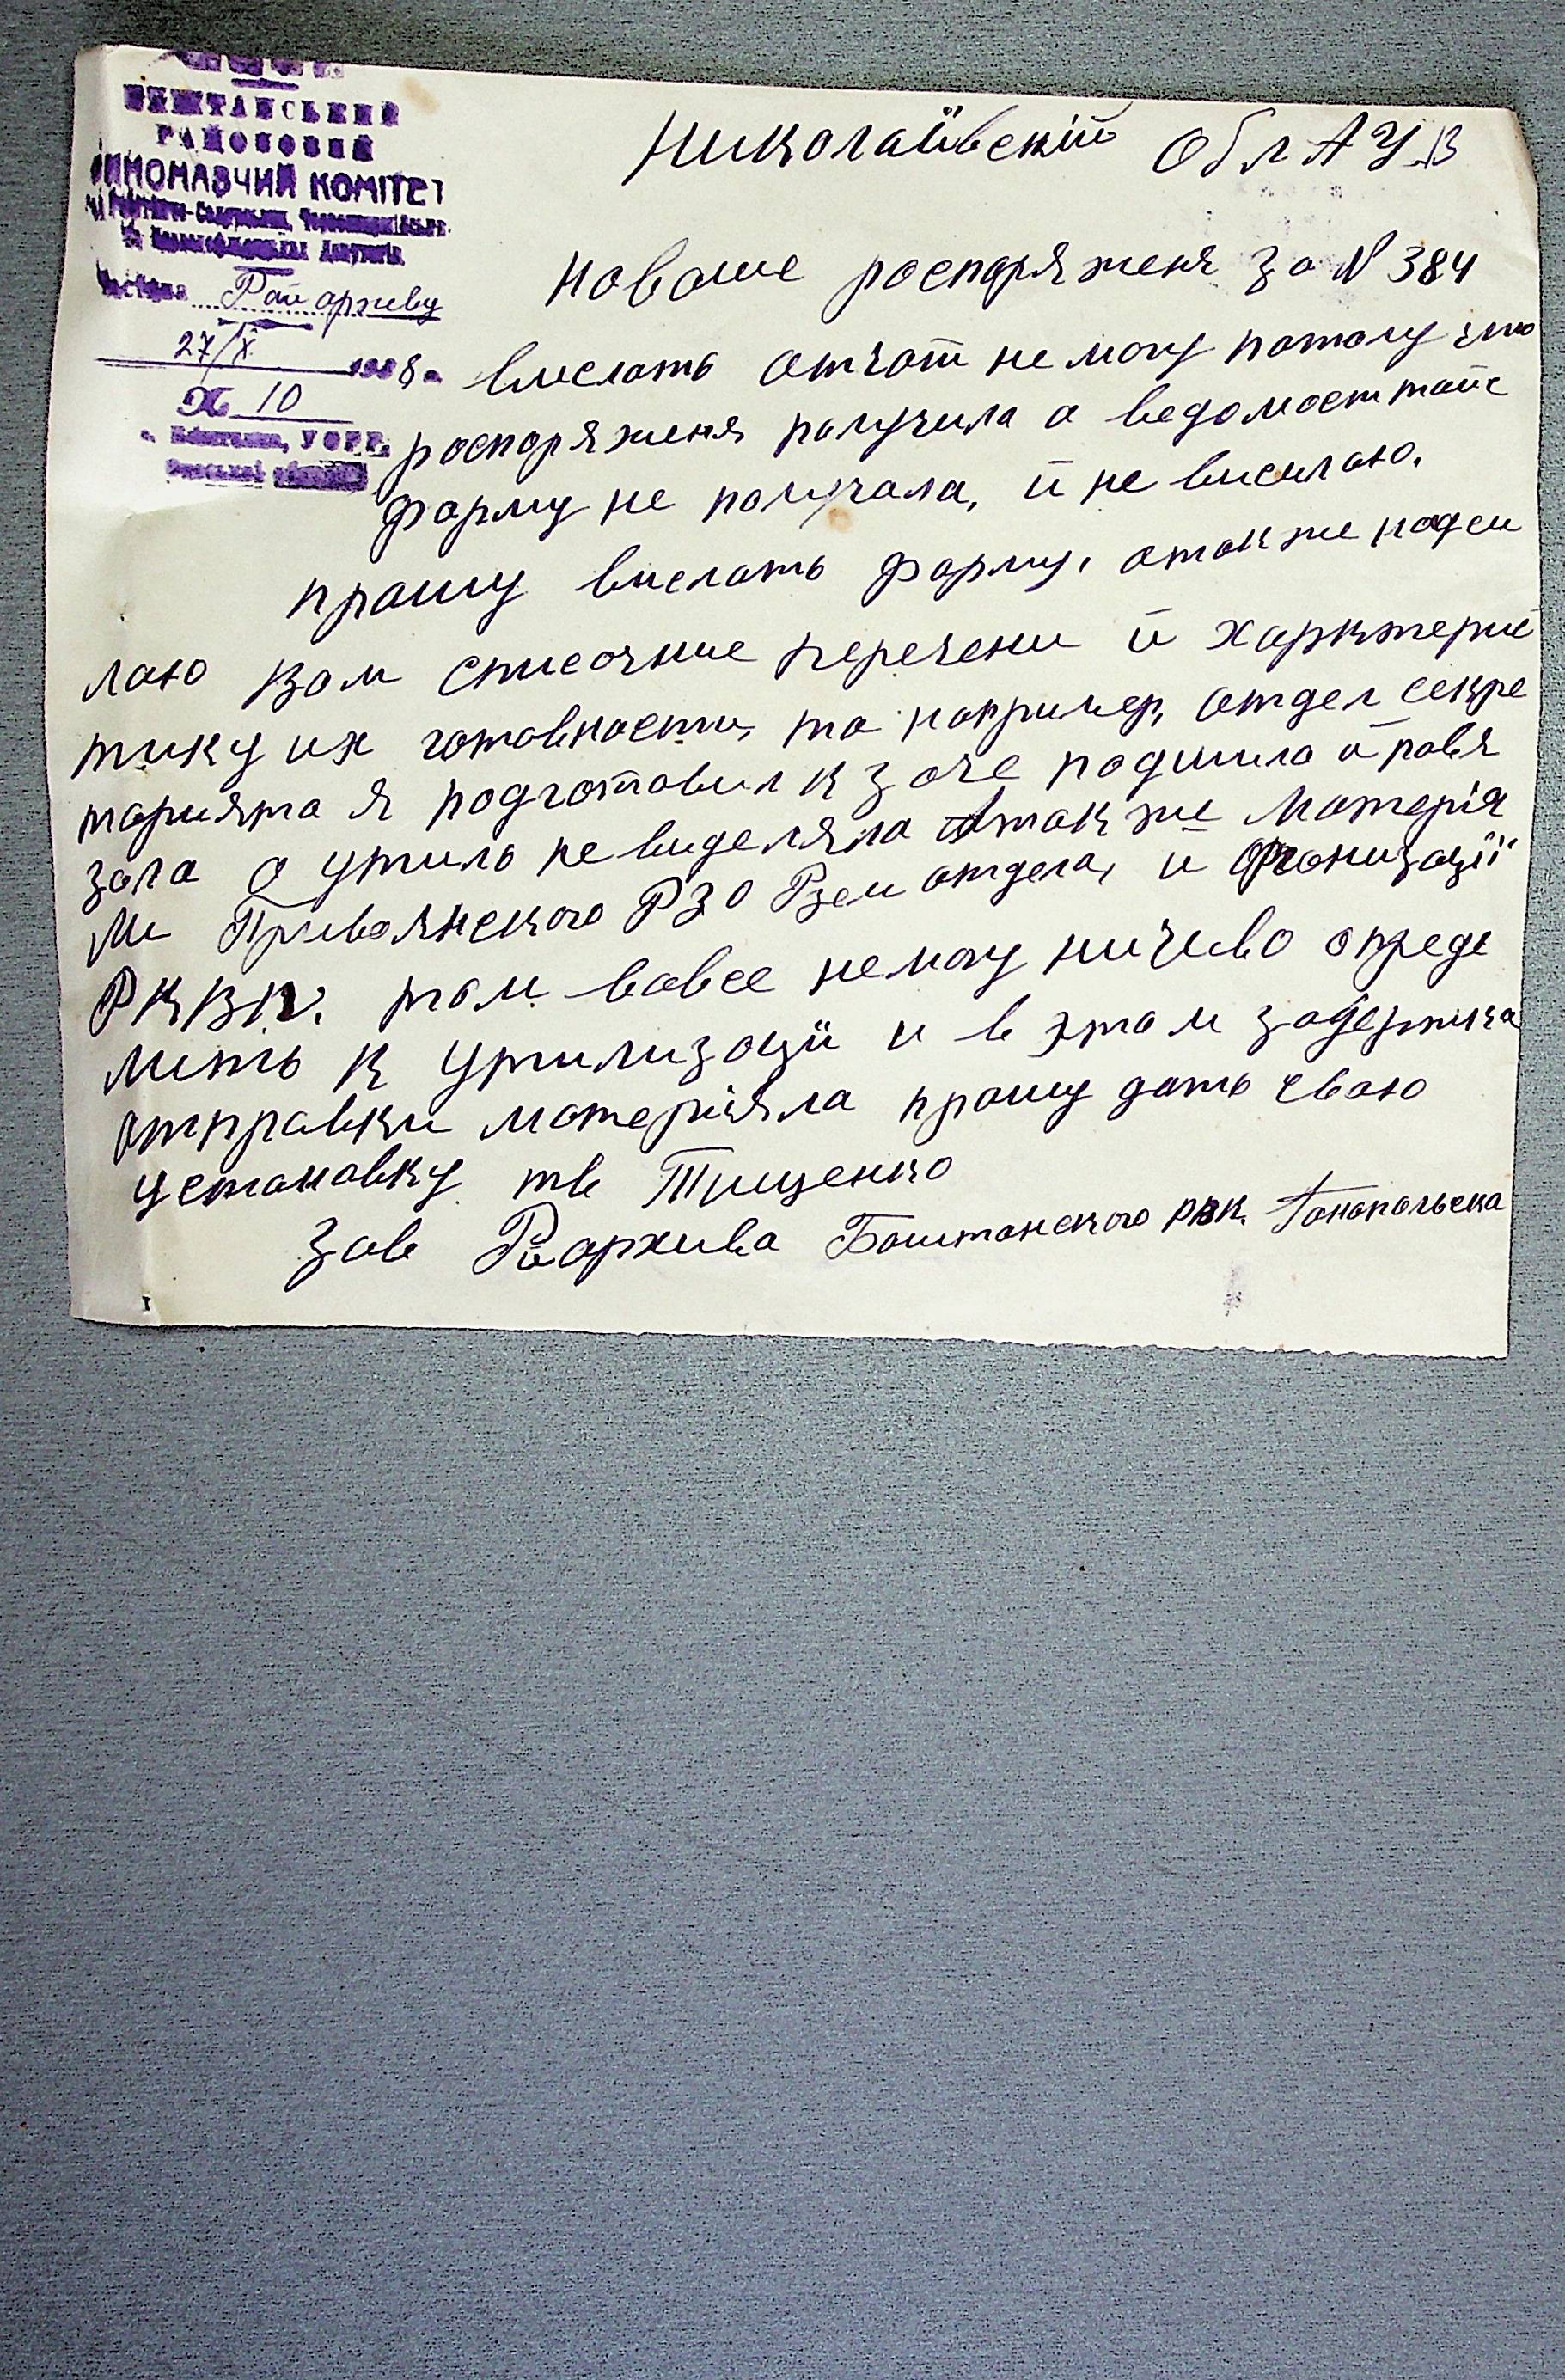 БАШТАНСЬКИЙ
РАЙОНОВИЙ
ВИКОНАВЧИЙ КОМІТЕТ
Рай археву
27/X 1938 г.
№ 10
УСРР
Николаївскій Обл АУ
Новаше роспоряженя за № 384
вислать отчот немогу потому что
роспоряженя получила а ведомост тойе
форму не получала, й не висилаю.
прошу вислать форму, отак же надси
лаю вам списочние перечени й харктерис
тику их готовности, то например, отдел секре
тарията я подготовил к здаче подшила й повя
зала а утиль не виделяла отак же Материя
ли Привольнского РЗО Рзем отдела, и Организації
РКВК. там вовсе немогу ничево опреде
лить к утилизації и в этом задержка
отправки материяла прошу дать свою
установку тв Тищенко
Зав Райархива Баштанского РВК.